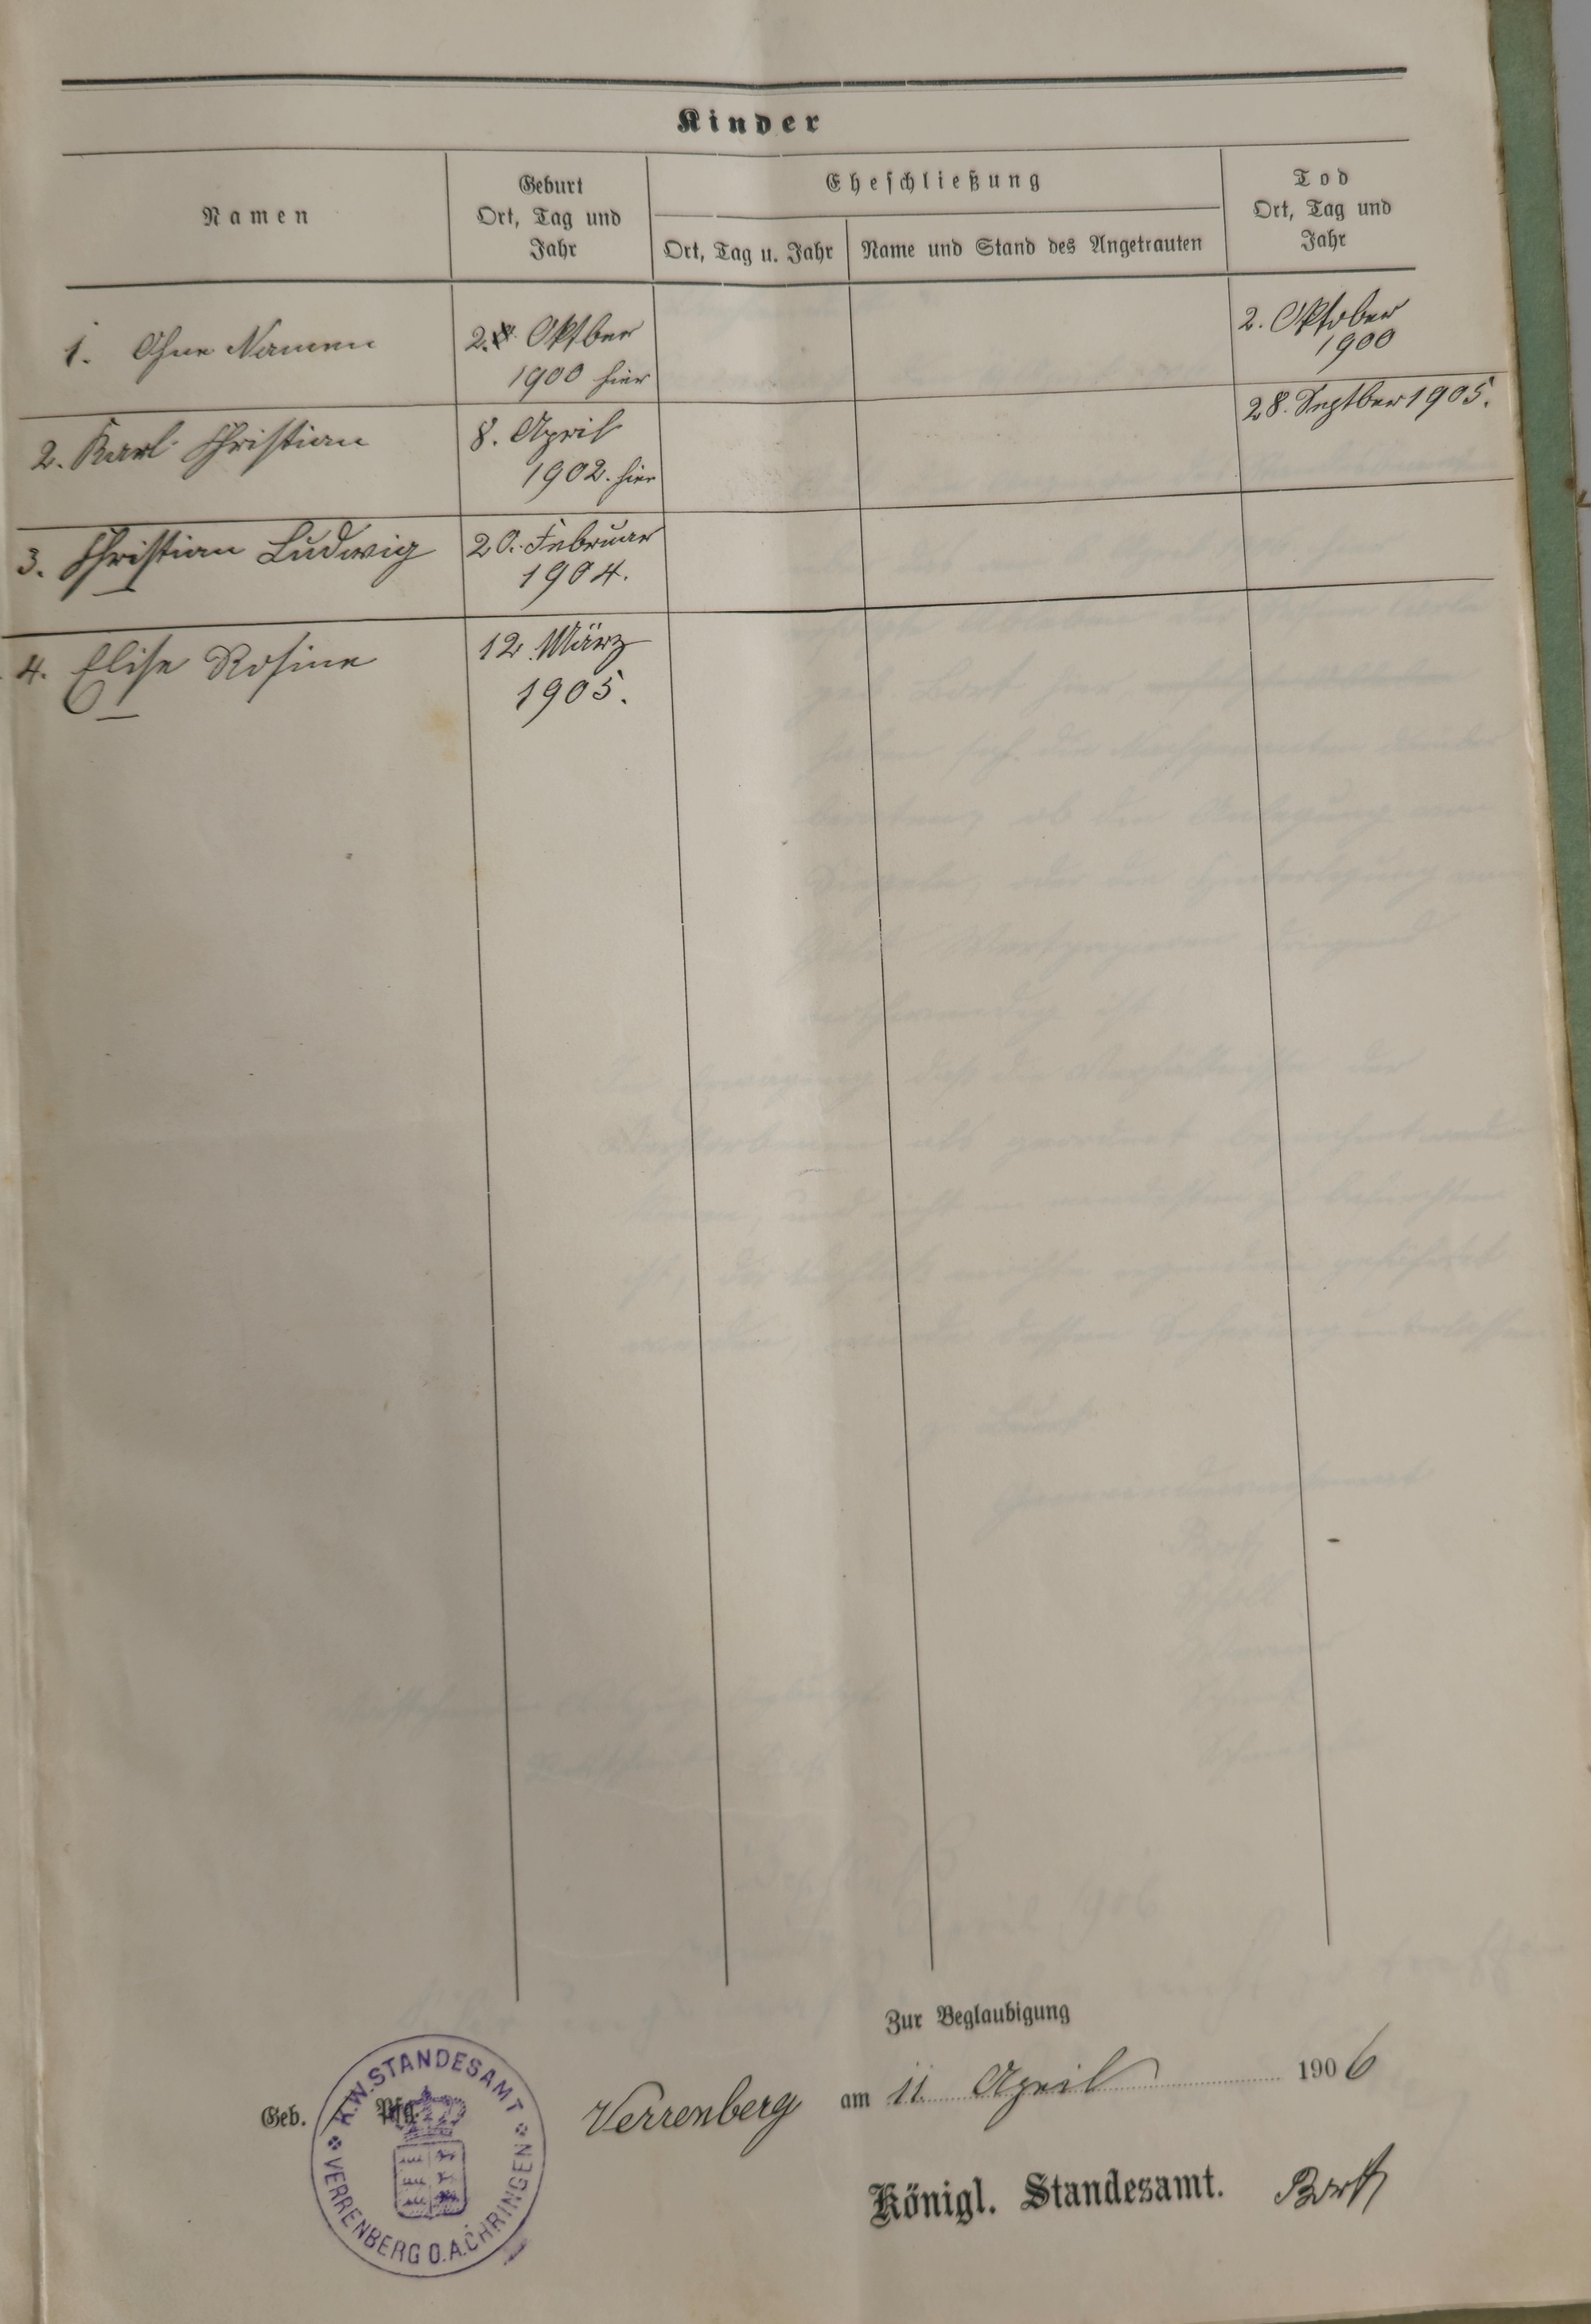 Kinder
Namen
Geburt
Ort, Tag und
Jahr
Eheschließung
Ort, Tag u. Jahr
Name und Stand des Angetrauten
Tod
Ort, Tag und
Jahr
1. Ohne Namen
2. Oktber
1900 hier
2. Oktober
1900
2. Karl Christian
8. April
1902. hier
28. Septber 1905.
3. Christian Ludwig
20. Februar
1904.
4. Elise Rosine
12. März
1905.
Zur Beglaubigung
Geb. Pfg.
K.W. STANDESAMT
VERRENBERG O.A. ÖHRINGEN
Verrenberg am 11. April 1906
Königl. Standesamt.